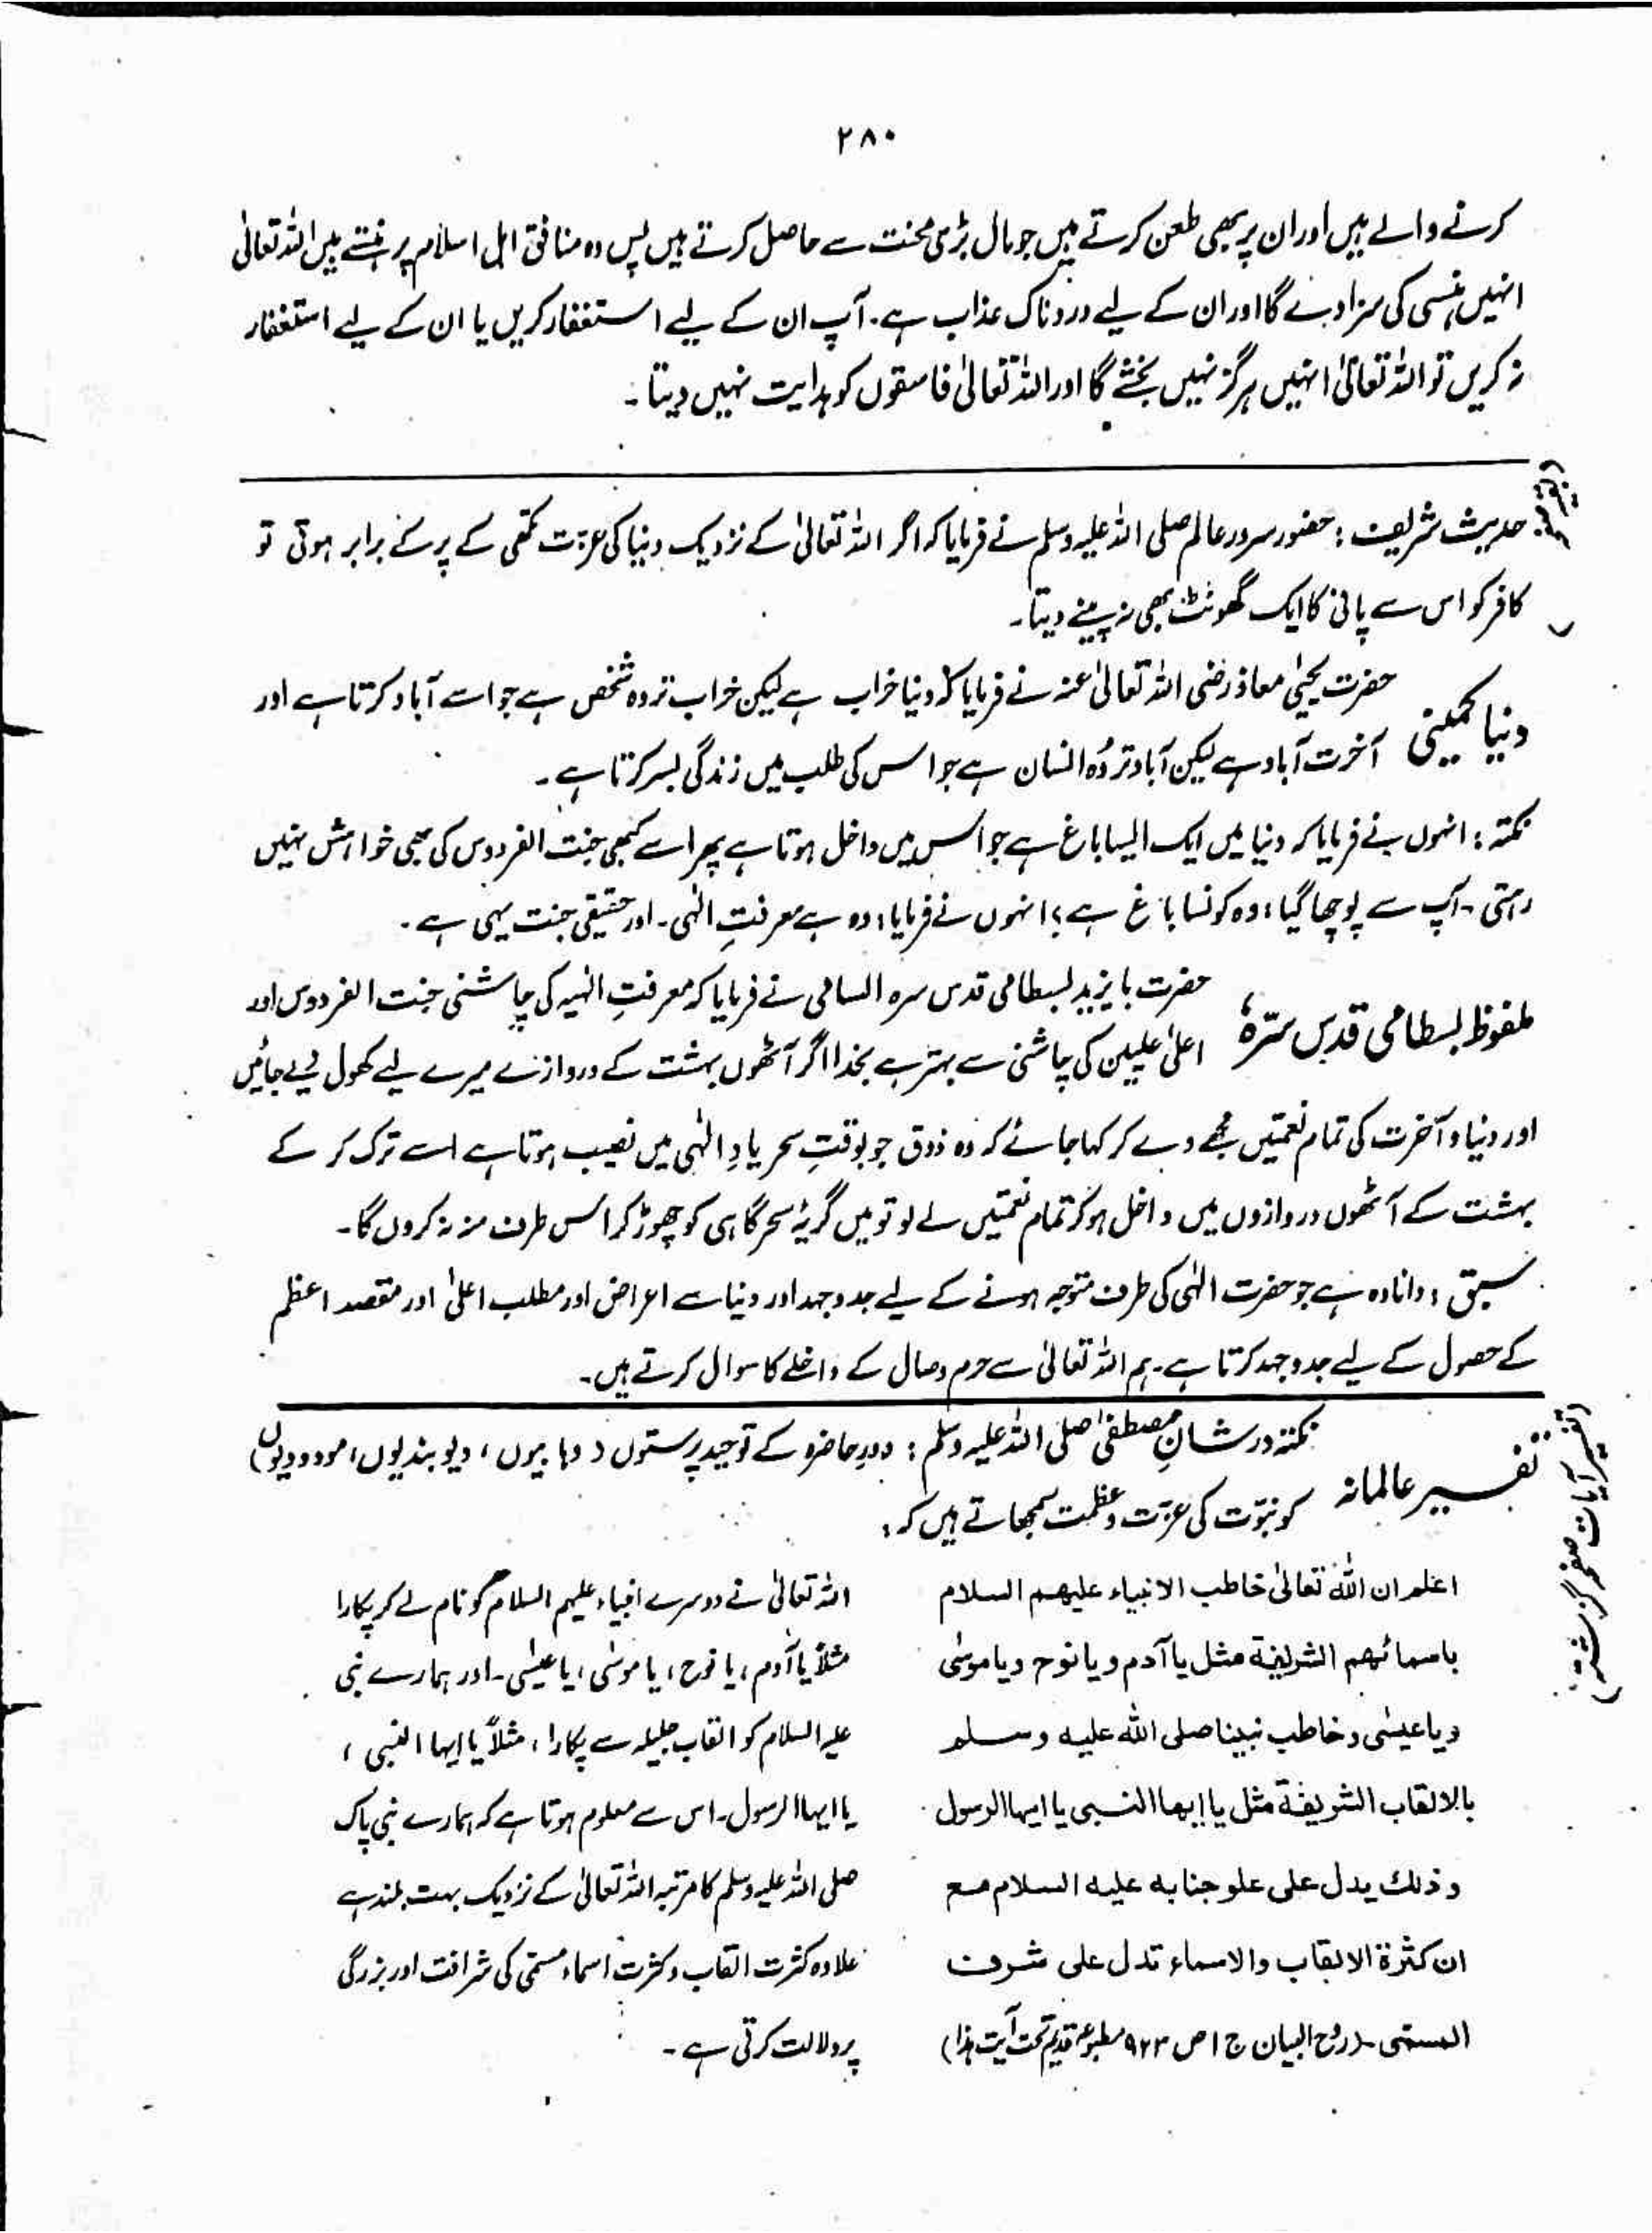 ۲۸۰
کرنے والے ہیں اور ان پر بھی طعن کرتے ہیں جو مال بڑی محنت سے حاصل کرتے ہیں پس وہ منافق اہل اسلام پر ہنستے ہیں اللہ تعالیٰ
انہیں ہنسی کی سزا دے گا اور ان کے لیے دردناک عذاب ہے۔ آپ ان کے لیے استغفار کریں یا ان کے لیے استغفار
نہ کریں تو اللہ تعالیٰ انہیں ہرگز نہیں بخشے گا اور اللہ تعالیٰ فاسقوں کو ہدایت نہیں دیتا۔
حدیث شریف : حضور سرور عالم صلی اللہ علیہ وسلم نے فرمایا کہ اگر اللہ تعالیٰ کے نزدیک دنیا کی عزت مکھی کے پر کے برابر ہوتی تو
کافر کو اس سے پانی کا ایک گھونٹ بھی نہ پینے دیتا۔
دنیا کمینی
حضرت یحییٰ معاذ رضی اللہ تعالیٰ عنہ نے فرمایا کہ دنیا خراب ہے لیکن خراب تر وہ شخص ہے جو اسے آباد کرتا ہے اور
آخرت آباد ہے لیکن آباد تر وُہ انسان ہے جو اس کی طلب میں زندگی بسر کرتا ہے۔
نکتہ : انہوں نے فرمایا کہ دنیا میں ایک ایسا باغ ہے جو اس میں داخل ہوتا ہے پھر اسے کبھی جنت الفردوس کی بھی خواہش نہیں
رہتی۔ آپ سے پوچھا گیا : وہ کونسا باغ ہے ؟ انہوں نے فرمایا : وہ ہے معرفتِ الٰہی۔ اور حقیقی جنت یہی ہے۔
ملفوظ بسطامی قدس سرّہٗ
حضرت بایزید بسطامی قدس سرہ السامی نے فرمایا کہ معرفتِ الٰہیہ کی چاشنی جنت الفردوس اور
اعلیٰ علیین کی چاشنی سے بہتر ہے بخدا اگر آٹھوں بہشت کے دروازے میرے لیے کھول لیے جائیں
اور دنیا و آخرت کی تمام نعمتیں مجھے دے کر کہا جائے کہ وہ ذوق جو بوقتِ سحر یادِ الٰہی میں نصیب ہوتا ہے اسے ترک کر کے
بہشت کے آٹھوں دروازوں میں داخل ہو کر تمام نعمتیں لے لو تو میں گریۂ سحرگاہی کو چھوڑ کر اس طرف منہ نہ کروں گا۔
سبق : دانا وہ ہے جو حضرت الٰہی کی طرف متوجہ ہونے کے لیے جدوجہد اور دنیا سے اعراض اور مطلب اعلیٰ اور مقصد اعظم
کے حصول کے لیے جدوجہد کرتا ہے۔ ہم اللہ تعالیٰ سے حرم وصال کے داخلے کا سوال کرتے ہیں۔
(تفسیر آیات صفحہ گزشتہ)
تفسیر عالمانہ
نکتہ در شانِ مصطفیٰ صلی اللہ علیہ وسلم : دورِ حاضرہ کے توحید پرستوں (وہابیوں ، دیوبندیوں ، مودودیوں)
کو نبوّت کی عزّت و عظمت سمجھاتے ہیں کہ :
اعلم ان اللّٰه تعالیٰ خاطب الانبیاء علیهم السلام
باسمائهم الشریفة مثل یا آدم و یا نوح و یا موسٰی
و یا عیسٰی و خاطب نبینا صلی اللّٰه علیه وسلم
بالالقاب الشریفة مثل یا ایها النبی یا ایها الرسول
و ذلك یدل علی علو جنابه علیه السلام مع
ان کثرة الالقاب والاسماء تدل علی شرف
المسمّی۔ (روح البیان ج ۱ ص ۹۲۳ مطبوعہ قدیم تحت آیت ہذا)
اللہ تعالیٰ نے دوسرے انبیاء علیہم السلام کو نام لے کر پکارا
مثلاً یا آدم ، یا نوح ، یا موسٰی ، یا عیسٰی۔ اور ہمارے نبی
علیہ السلام کو القاب جلیلہ سے پکارا ، مثلاً یا ایہا النبی ،
یا ایہا الرسول۔ اس سے معلوم ہوتا ہے کہ ہمارے نبی پاک
صلی اللہ علیہ وسلم کا مرتبہ اللہ تعالیٰ کے نزدیک بہت بلند ہے
علاوہ کثرت القاب و کثرت اسماء مسمّی کی شرافت اور بزرگی
پر دلالت کرتی ہے۔